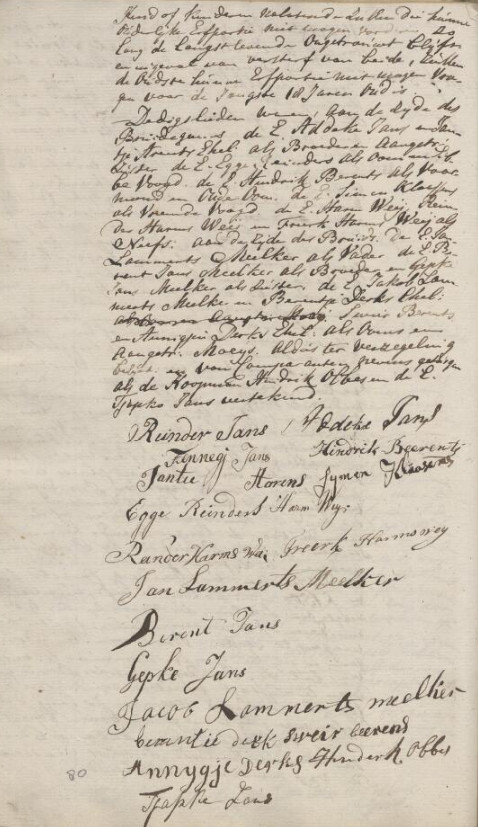 Kind of Kinderen nalatende zullen die hunne
Erfportie niet mogen vorderen zo
lang de langst levende ongetrouwt blijft
en ingeval van versterf van beide, zullen
de oudste hunne Erfportie niet mogen vra-
gen voor de Jongste 18 Jaren oud is.
Dedigslieden waren aan de zyde des
Bruidegoms de E. Addeke Jans en Jan-
tje Arents Ehel. als Broeder en Aangetr.
Zuster de E. Egge Reinders als Oom en
Voogd. de E. Hindrik Berents als Voor-
mond en Oude Oom. de E. Simen Klaassens
als Vreemde Voogd de E. Harm Weij, Rein-
der Harms Weij en Freerk Harms Weij als
Neefs. aan de zyde des Bruids. de E. Jan
Lammerts Meelker als Vader de E. Be-
rent Jans Meelker als Broeder en Gepke
Jans Meelker als Zuster. de E. Jakob Lam-
merts Melker en Berentje Derks Ehel.
Sweir Berents
en Annigjen Derks Ehel. als Ooms en
Aangetr. Moeijs. Aldus ter verzegeling
en van Comparanten
als de Koopman Hindrik Obbes en de E.
Tjapko Jans vertekend.
Reinder Jans Addeke Jans
Finnegj Jans Hendrik Beerents
Jantie Harens Symon Klaasens
Egge Reinders Harm Weij
Reinder Harms Wai Freerk Harms wey
Jan Lammerts Meelker
Berent Jans
Gepke Jans
Jacob Lammerts meelker
berentie derk sweir beerend
Annygje Derks Hinderk Obbes
Tjapke Jans
80